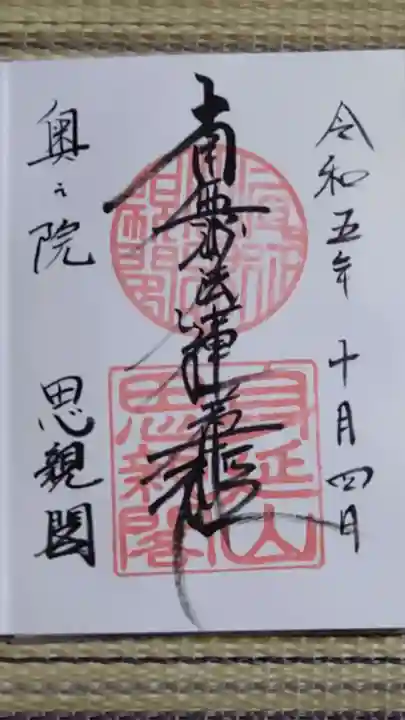 令和五年 十月四日
南無妙法蓮華経
奥之院 思親閣
身延山
思親閣